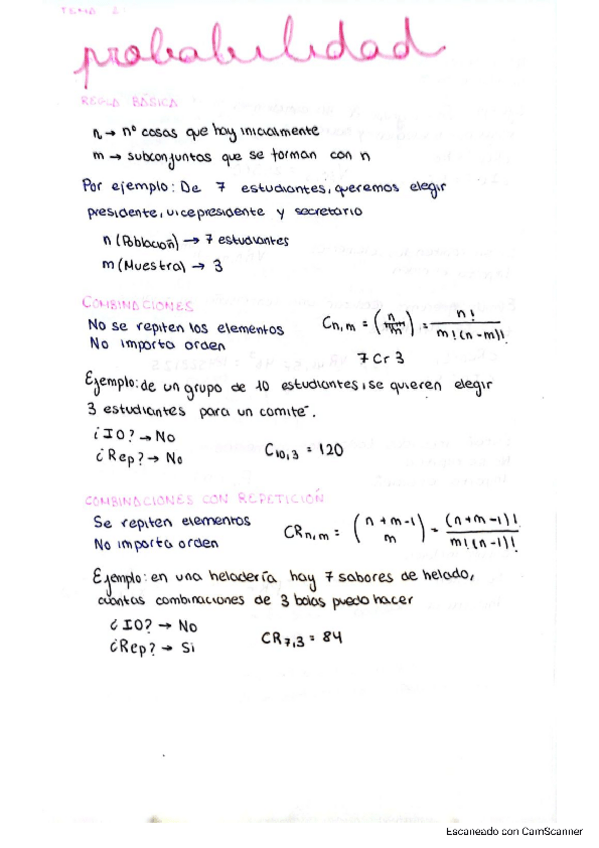 TEMA 2:
probabilidad
REGLA BÁSICA
n → nº cosas que hay inicialmente
m → subconjuntos que se forman con n
Por ejemplo: De 7 estudiantes, queremos elegir
presidente, vicepresidente y secretario
n (Población) → 7 estudiantes
m (Muestra) → 3
COMBINACIONES
No se repiten los elementos
No importa orden
Cn,m = (n/m) = n! / m!(n-m)!
7 Cr 3
Ejemplo: de un grupo de 10 estudiantes, se quieren elegir
3 estudiantes para un comité.
¿IO? → No
¿Rep? → No
C10,3 = 120
COMBINACIONES CON REPETICIÓN
Se repiten elementos
No importa orden
CRn,m = (n+m-1 m) = (n+m-1)! / m!(n-1)!
Ejemplo: en una heladería hay 7 sabores de helado,
cuantas combinaciones de 3 bolas puedo hacer
¿IO? → No
¿Rep? → Si
CR7,3 = 84
Escaneado con CamScanner